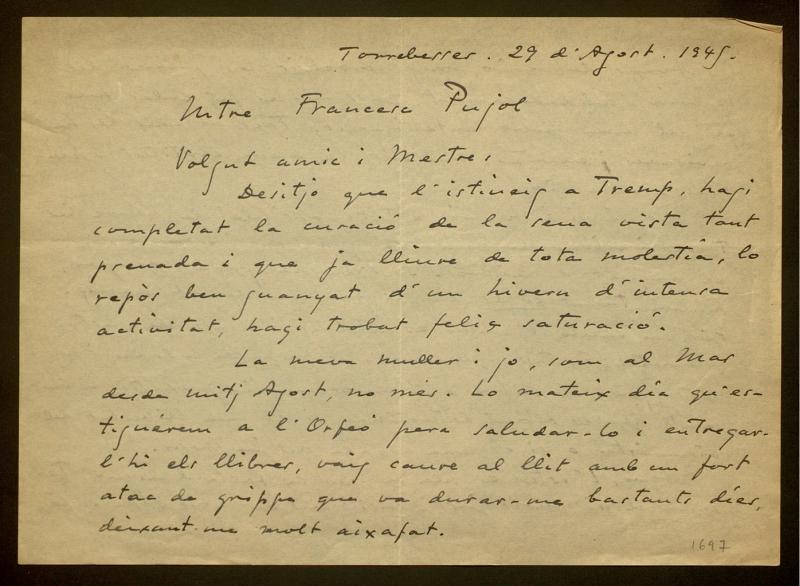 Torrebesses. 29 d'Agost. 1945.
Mtre Francesc Pujol
Volgut amic i Mestre:
Desitjo que l'istiueig a Tremp, hagi
completat la curació de la seua vista tant
preuada i que ja lliure de tota molestia, lo
repòs ben guanyat d'un hivern d'intensa
activitat, hagi trobat feliç saturació.
La meva muller i jo, som al Mas
desde mitj Agost, no més. Lo mateix día qu'es-
tiguérem a l'Orfeó pera saludar-lo i entregar-
l'hi els llibres, vaig caure al llit amb un fort
atac de grippe que va durar-me bastants díes,
deixant-me molt aixafat.
1697